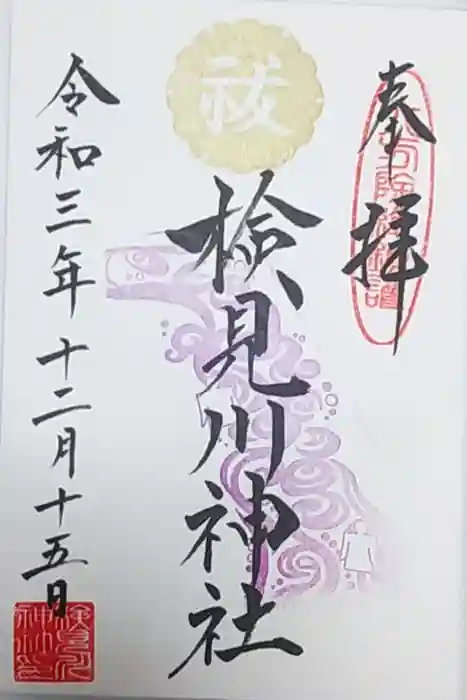 奉拝
祓
検見川神社
令和三年十二月十五日
検見川
神社